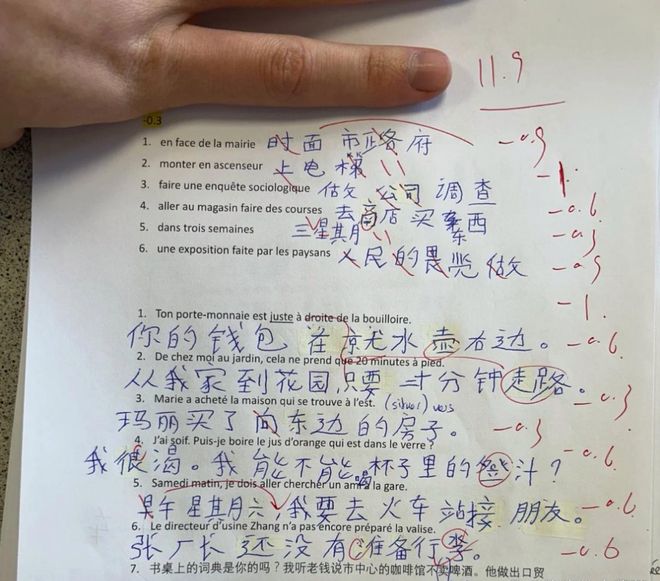 11.9
-0.3
1. en face de la mairie 对面 市政府 -0.9
2. monter en ascenseur 上电梯 -1.
3. faire une enquête sociologique 做 公司 调查
4. aller au magasin faire des courses 去商店买东西 -0.6
5. dans trois semaines 三星其月 -0.3
6. une exposition faite par les paysans 人民的 做 -0.9
-1
1. Ton porte-monnaie est juste à droite de la bouilloire.
你的钱包在 水壶右边。 -0.6
2. De chez moi au jardin, cela ne prend que 20 minutes à pied.
从我家到花园只要二十分钟走路。 -0.3
3. Marie a acheté la maison qui se trouve à l'est.
玛丽买了向东边的房子。 -0.3
4. J'ai soif. Puis-je boire le jus d'orange qui est dans le verre ?
我很渴。我能不能喝杯子里的 汁？ -0.6
5. Samedi matin, je dois aller chercher un ami à la gare.
星其月六 我要去火车站接朋友。 -0.6
6. Le directeur d'usine Zhang n'a pas encore préparé la valise.
张厂长还没有准备行李。 -0.6
7. 书桌上的词典是你的吗？我听老钱说市中心的咖啡馆不卖啤酒。他做出口贸